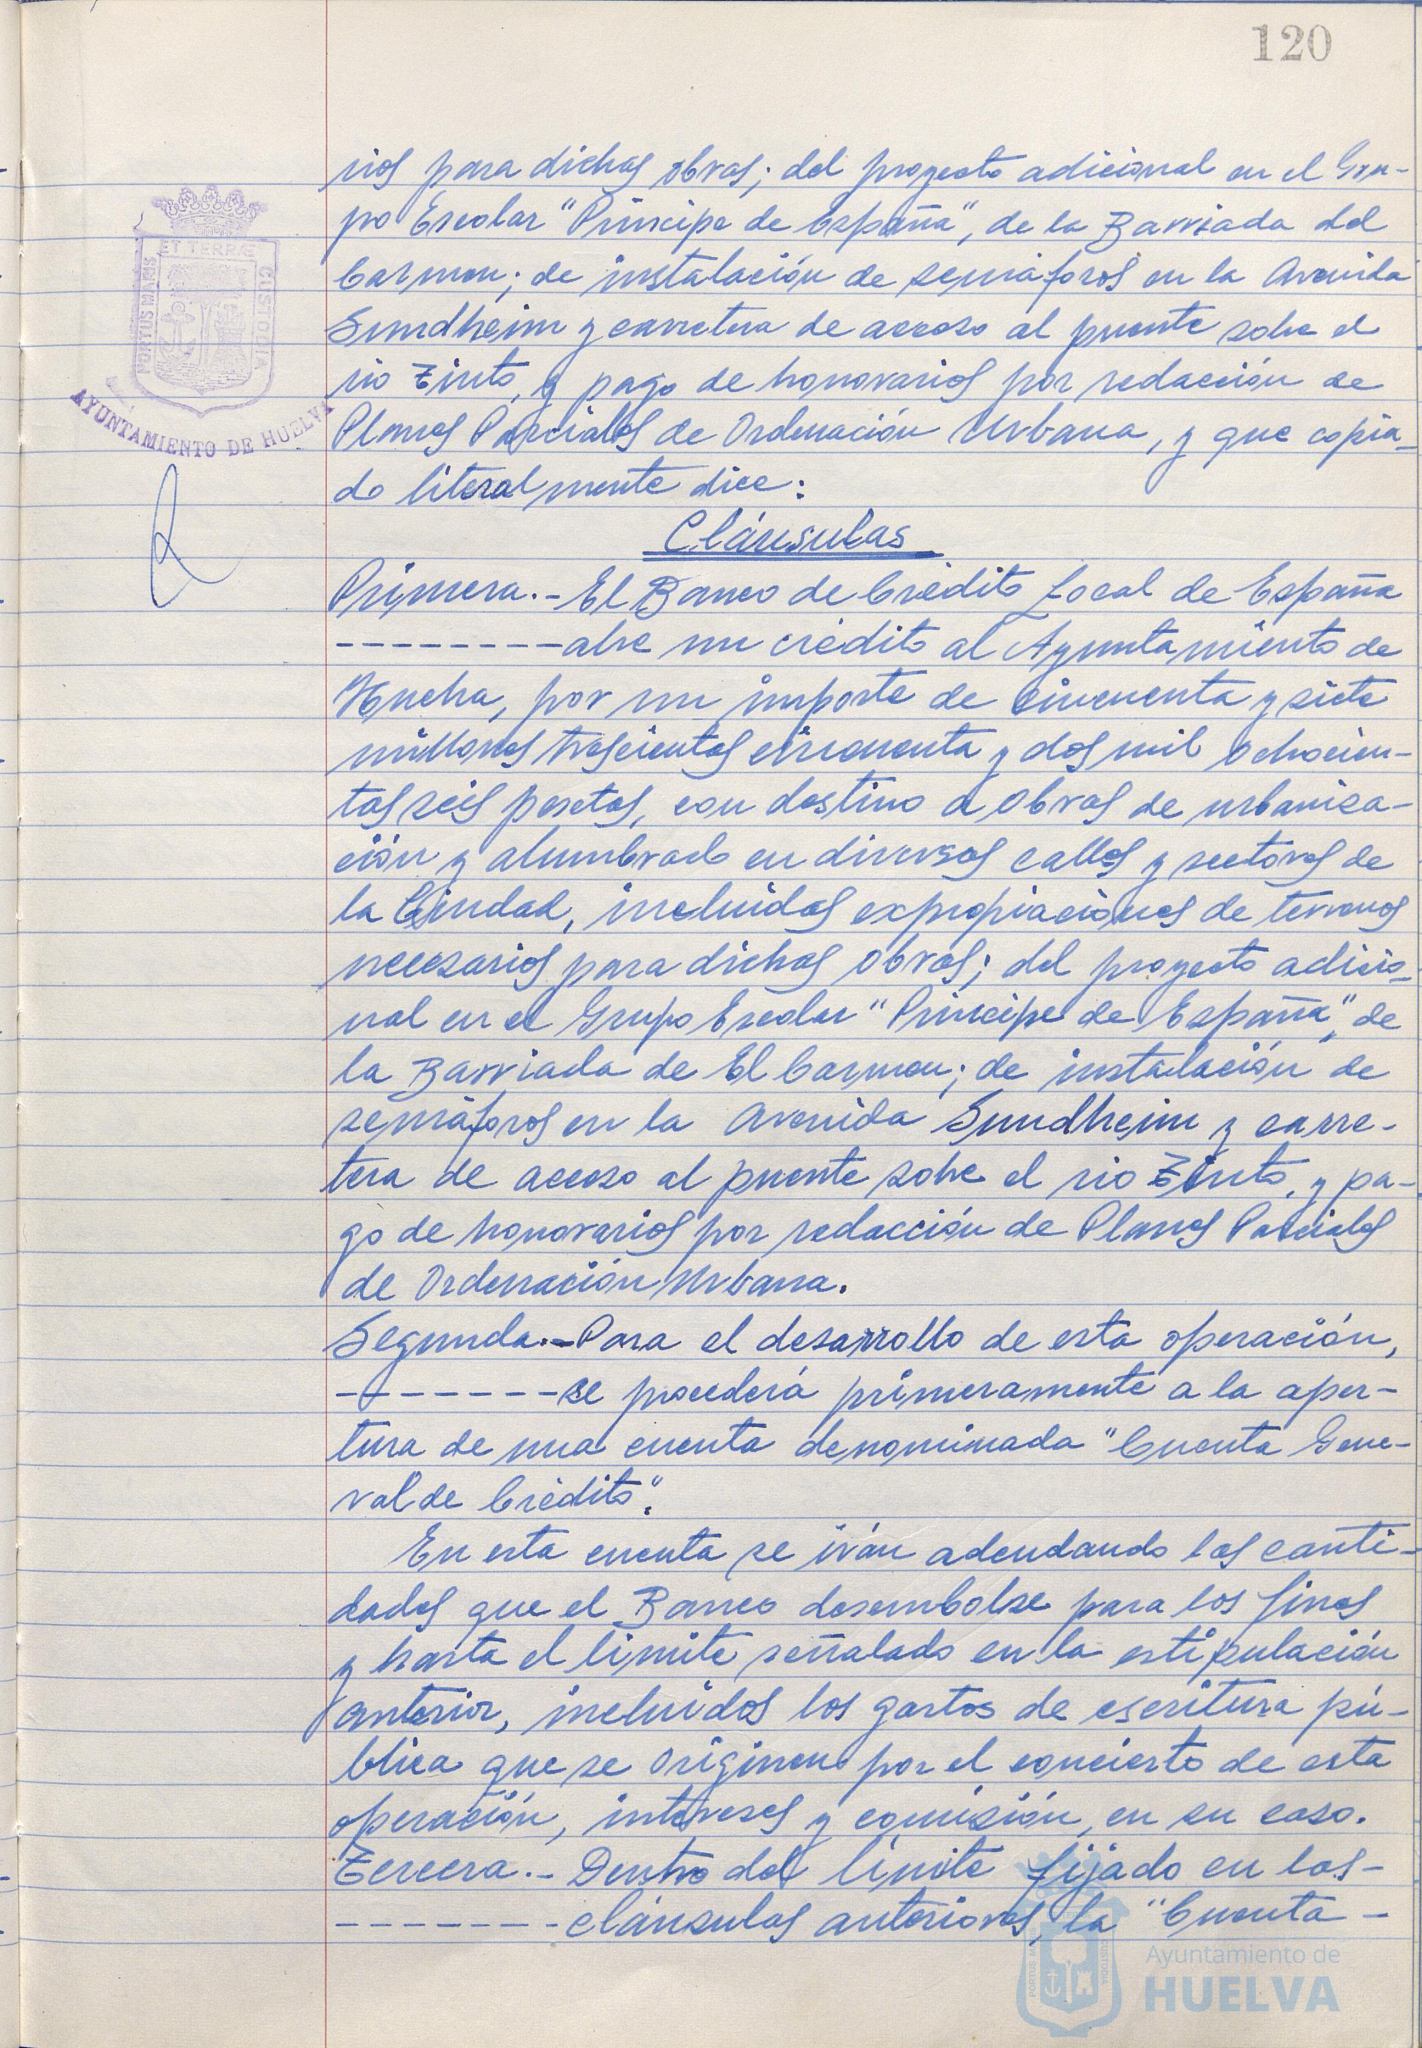 120
rios para dichas obras; del proyecto adicional en el Gru-
po Escolar "Príncipe de España", de la Barriada del
Carmen; de instalación de semáforos en la Avenida
Sundheim y carretera de acceso al puente sobre el
rio Tinto, y pago de honorarios por redacción de
Planes Parciales de Ordenación Urbana, y que copia-
do literalmente dice:
Cláusulas
Primera.- El Banco de Crédito Local de España
--------- abre un crédito al Ayuntamiento de
Huelva, por un importe de cincuenta y siete
millones trescientas cincuenta y dos mil ochocien-
tas seis pesetas, con destino a obras de urbaniza-
ción y alumbrado en diversas calles y sectores de
la Ciudad, incluidas expropiaciones de terrenos
necesarios para dichas obras; del proyecto adicio-
nal en el Grupo Escolar "Príncipe de España", de
la Barriada de El Carmen; de instalación de
semáforos en la Avenida Sundheim y carre-
tera de acceso al puente sobre el rio Tinto, y pa-
go de honorarios por redacción de Planes Parciales
de Ordenación Urbana.
Segunda.- Para el desarrollo de esta operación,
-------- se procederá primeramente a la aper-
tura de una cuenta denominada "Cuenta Gene-
ral de Crédito".
En esta cuenta se irán adeudando las canti-
dades que el Banco desembolse para los fines
y hasta el límite señalado en la estipulación
anterior, incluidos los gastos de escritura pú-
blica que se originen por el concierto de esta
operación, intereses y comisión, en su caso.
Tercera.- Dentro del límite fijado en las-
-------- cláusulas anteriores, la "Cuenta -
ET TERRÆ
PORTUS MARIS
CUSTODIA
AYUNTAMIENTO DE HUELVA
Ayuntamiento de
HUELVA